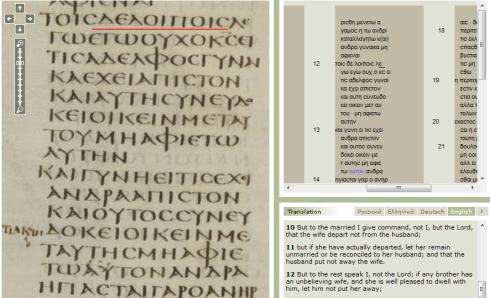 ΤΟΙCΔΕΛΟΙΠΟΙCΛΕ
ΓΩΕΓΩΟΥΧΟΚCΕΙ
ΤΙCΑΔΕΛΦΟCΓΥΝΑΙ
ΚΑΕΧΕΙΑΠΙCΤΟΝ
ΚΑΙΑΥΤΗCΥΝΕΥΔΟ
ΚΕΙΟΙΚΕΙΝΜΕΤΑΥ
ΤΟΥΜΗΑΦΙΕΤΩ
ΑΥΤΗΝ
ΚΑΙΓΥΝΗΕΙΤΙCΕΧΕΙ
ΑΝΔΡΑΑΠΙCΤΟΝ
ΚΑΙΟΥΤΟCCΥΝΕΥ
ΔΟΚΕΙΟΙΚΕΙΝΜΕ
ΤΑΥΤΗCΜΗΑΦΙΕ
ΤΩΑΥΤΟΝΑΝΔΡΑ
ΗΓΙΑCΤΑΙΓΑΡΟΑΝΗΡ
ρισθη μενετω α
γαμος η τω ανδρι
καταλλαγητω κ(αι)
ανδρα γυναικα μη
αφιεναι
12 τοις δε λοιποις λε
γω εγω ουχ ο κς ει
τις αδελφος γυναι
κα εχει απιστον
και αυτη ϲυνευδο
κει οικειν μετ αυ
του · μη αφιετω
αυτην
13 και γυνη ει τις εχει
ανδρα απιστον
και ουτος συνευ
δοκει οικειν με
τ αυτης μη αφιε
τω αυτον ανδρα
14 ηγιασται γαρ ο ανηρ
18
19
20
21
Translation Русский Ελληνικά Deutsch English
10 But to the married I give command, not I, but the Lord,
that the wife depart not from the husband;
11 but if she have actually departed, let her remain
unmarried or be reconciled to her husband; and that the
husband put not away the wife.
12 But to the rest speak I, not the Lord; if any brother has
an unbelieving wife, and she is well pleased to dwell with
him, let him not put her away;